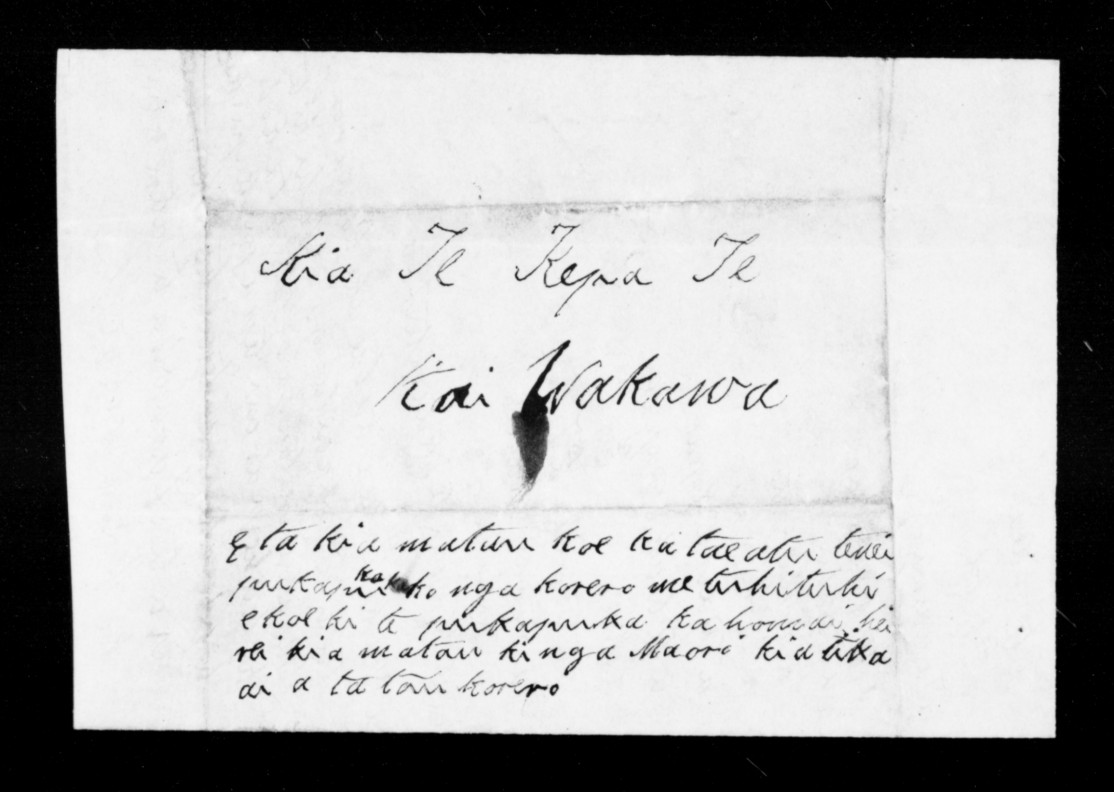 Kia Te Kepa Te
Kai Wakawa
E ta kia matau koe ka tae atu tenei
pukapuka ko nga korero me tuhituhi
e koe ki te pukapuka ka homai hei
rei kia matau ki nga Maori kia tika
ai a ta tau korero